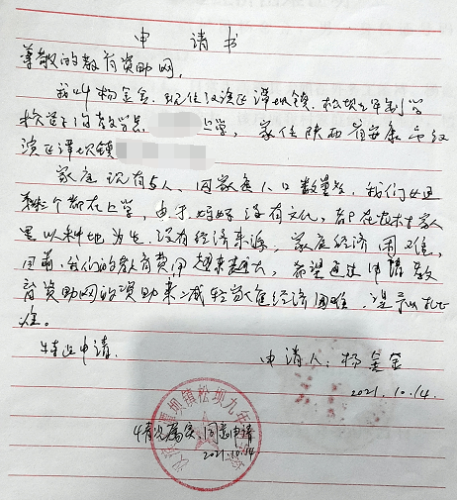 申请书
尊敬的教育资助网,
我叫杨金金,现住汉滨区潭坝镇.松坝九年制学
校 上学,家住陕西省安康市汉
滨区潭坝镇
家庭现有5人、因家庭人口数量多,我们姐
个都在上学,由于妈妈没有文化,都在农村家
里以种地为生.没有经济来源,家庭经济困难,
目前.我们的教育费用越来越大,希望通过申请教
育资助网的资助来减轻家庭经济困难.
难.
特此申请.
申请人:杨金金
2021.10.14.
坝镇松坝九年
情况属实,同意申请
2021.10.14